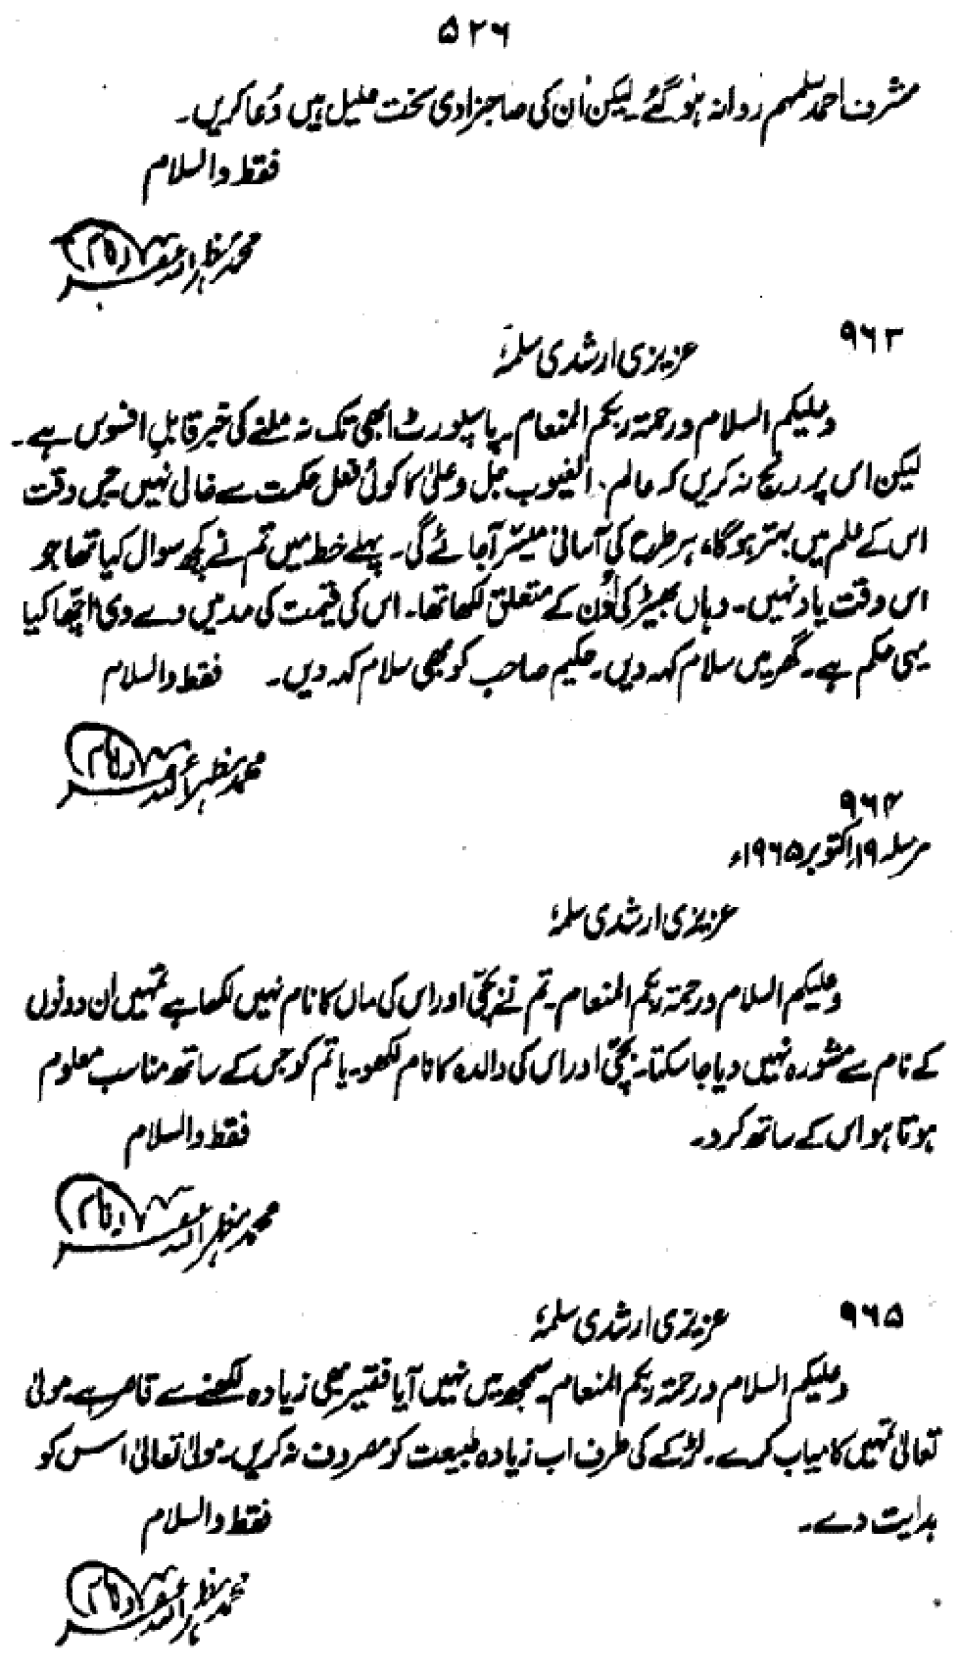 ۵۲۶
مشرف احمد سلمہم روانہ ہو گئے۔ لیکن اُن کی صاجزادی سخت علیل ہیں دُعا کریں۔
فقط والسلام
محمد مظہر اللہ غفرلہ
۹۶۳
عزیزی ارشدی سلمہٗ
وعلیکم السلام ورحمۃ ربکم المنعام۔ پاسپورٹ ابھی تک نہ ملنے کی خبر قابلِ افسوس ہے۔
لیکن اس پر رنج نہ کریں کہ عالم الغیوب جل وعلیٰ کا کوئی فعل حکمت سے خالی نہیں جس وقت
اس کے علم میں بہتر ہوگا، ہر طرح کی آسانی میسّر آجائے گی۔ پہلے خط میں تم نے کچھ سوال کیا تھا جو
اس وقت یاد نہیں۔ وہاں بھیڑ کی اُون کے متعلق لکھا تھا۔ اس کی قیمت کی مد میں دے دی اچھا کیا
یہی حکم ہے۔ گھر میں سلام کہہ دیں۔ حکیم صاحب کو بھی سلام کہہ دیں۔ فقط والسلام
محمد مظہر اللہ غفرلہ
۹۶۴
مرسلہ ۱۹؍ اکتوبر ۱۹۶۵ء
عزیزی ارشدی سلمہٗ
وعلیکم السلام ورحمۃ ربکم المنعام۔ تم نے بچّی اور اس کی ماں کا نام نہیں لکھا ہے تمہیں ان دونوں
کے نام سے مشورہ نہیں دیا جاسکتا۔ بچّی اور اس کی والدہ کا نام لکھو۔ یا تم کو جس کے ساتھ مناسب معلوم
ہوتا ہو اس کے ساتھ کردو۔
فقط والسلام
محمد مظہر اللہ غفرلہ
۹۶۵
عزیزی ارشدی سلمہٗ
وعلیکم السلام ورحمۃ ربکم المنعام۔ سمجھ میں نہیں آیا فقیر بھی زیادہ لکھنے سے قاصر ہے۔ مولیٰ
تعالیٰ تمہیں کامیاب کرے۔ لڑکے کی طرف اب زیادہ طبیعت کو مصروف نہ کریں۔ مولیٰ تعالیٰ اس کو
ہدایت دے۔
فقط والسلام
محمد مظہر اللہ غفرلہ